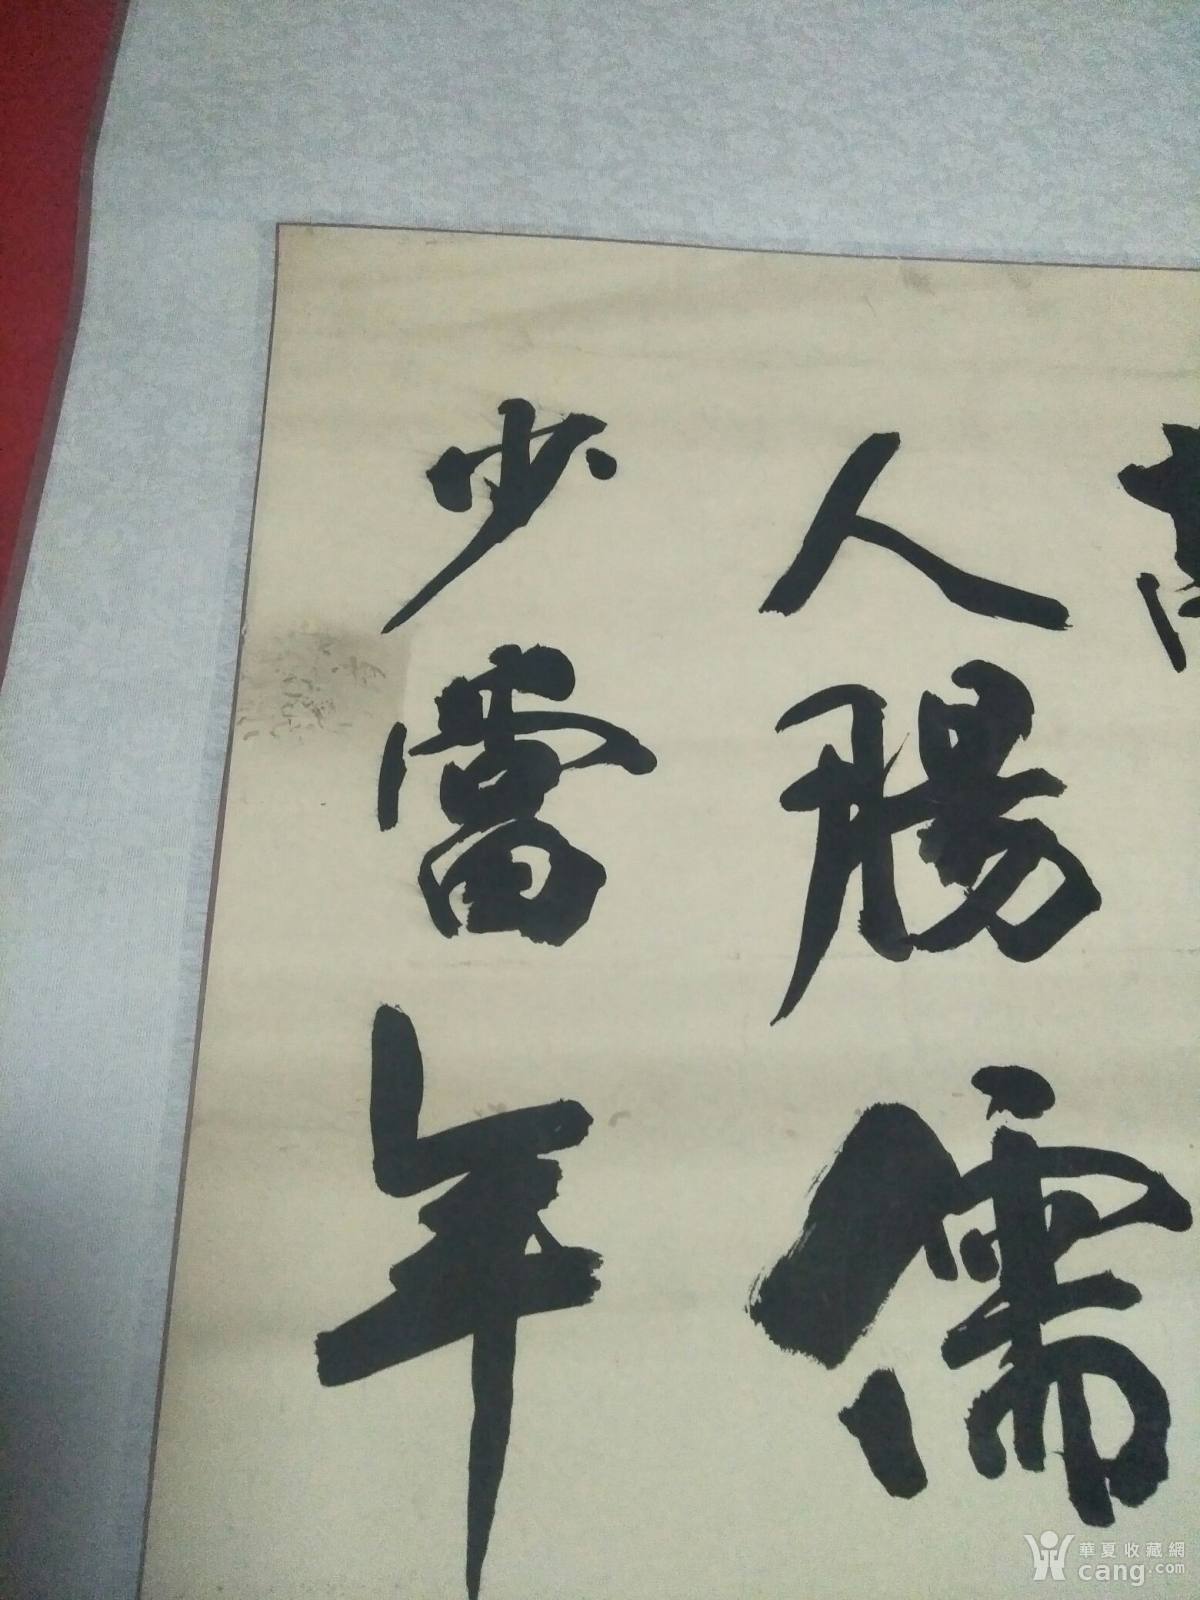 人腸儒
少當年
華夏收藏網
cang.com